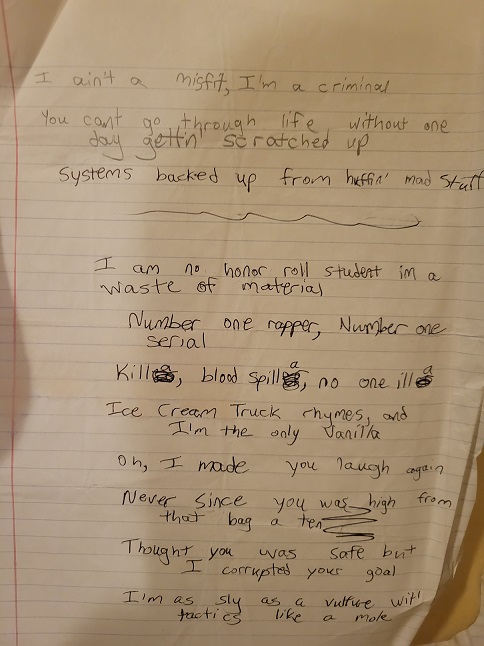 I ain't a misfit, I'm a criminal
You cant go through life without one
day gettin' scratched up
Systems backed up from huffin' mad stuff
I am no honor roll student im a
waste of material
Number one rapper, Number one
serial
Killa, blood spilla, no one illa
Ice Cream Truck rhymes, and
I'm the only Vanilla
Oh, I made you laugh again
Never since you was high from
that bag a ten
Thought you was safe but
I corrupted your goal
I'm as sly as a vulture with
tactics like a mole